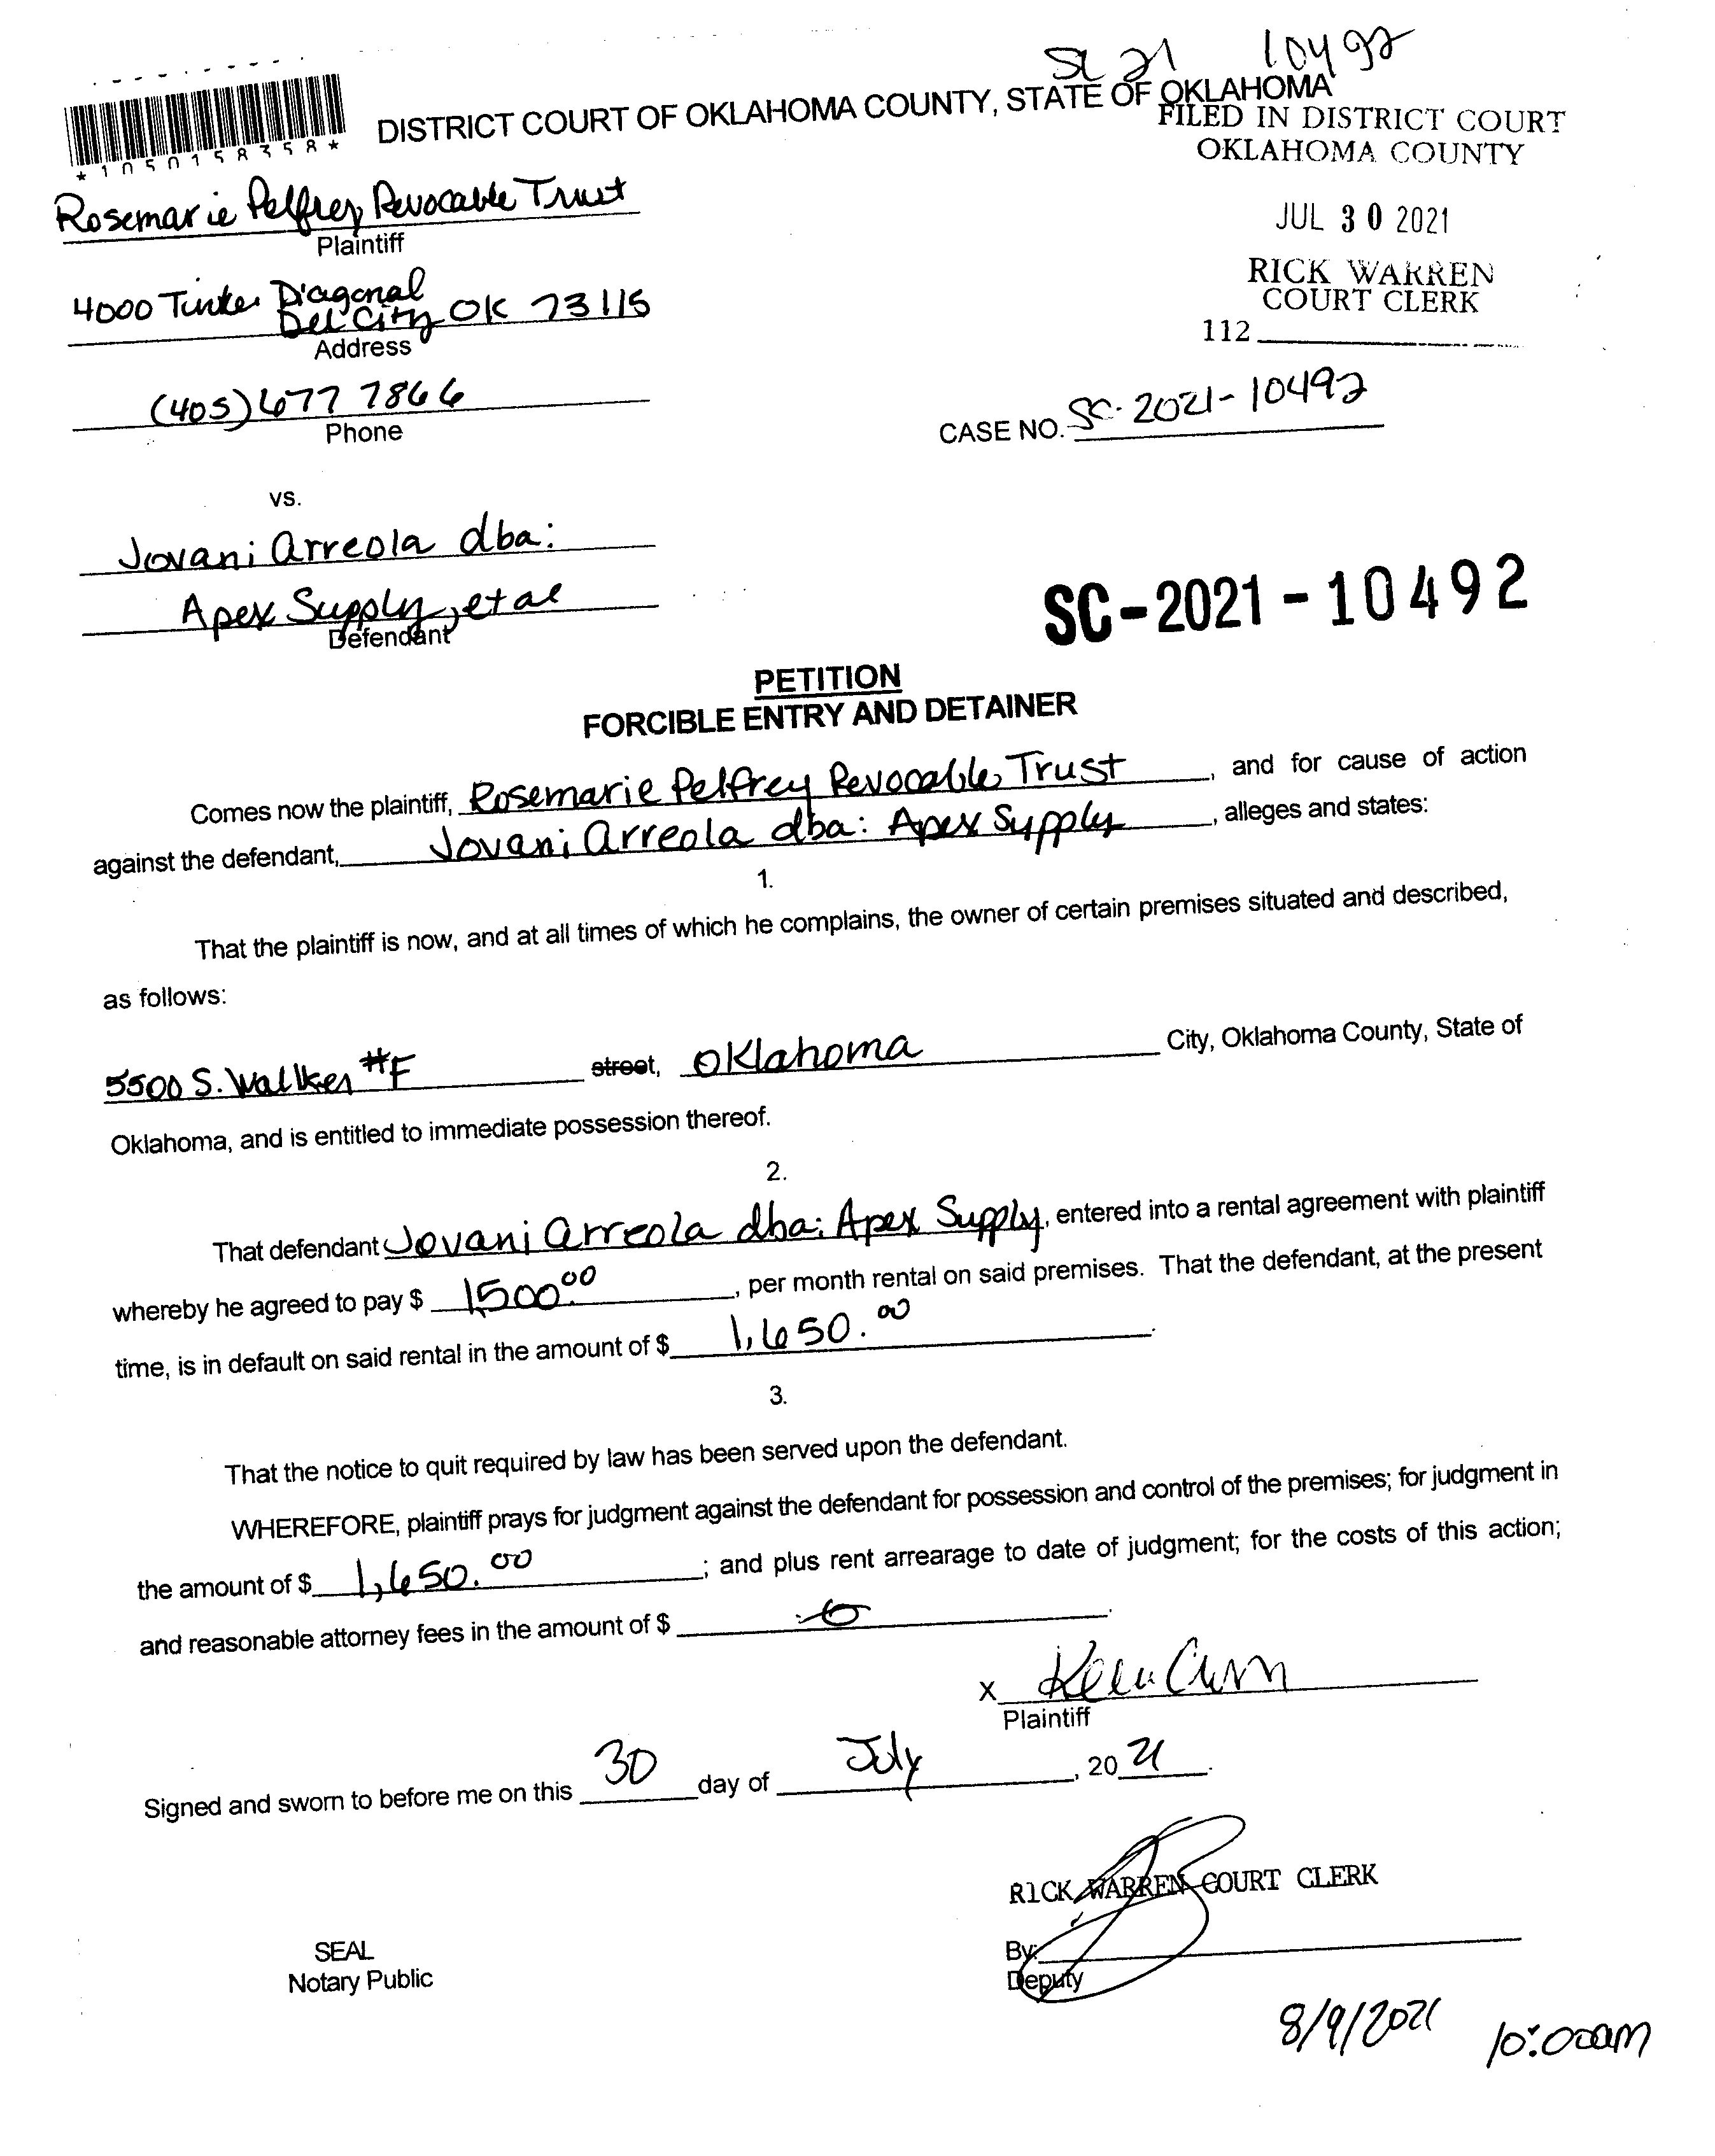 SC 21 10492
DISTRICT COURT OF OKLAHOMA COUNTY, STATE OF OKLAHOMA
*1050158358*
FILED IN DISTRICT COURT
OKLAHOMA COUNTY
JUL 30 2021
RICK WARREN
COURT CLERK
112
Rosemarie Pelfrey Revocable Trust
Plaintiff
4000 Tinker Diagonal
Del City OK 73115
Address
(405) 677 7866
Phone
CASE NO. SC-2021-10492
vs.
Jovani Arreola dba:
Apex Supply, et al
Defendant
SC-2021-10492
PETITION
FORCIBLE ENTRY AND DETAINER
Comes now the plaintiff, Rosemarie Pelfrey Revocable Trust, and for cause of action
against the defendant, Jovani Arreola dba: Apex Supply, alleges and states:
1.
That the plaintiff is now, and at all times of which he complains, the owner of certain premises situated and described,
as follows:
5500 S. Walker #F street, Oklahoma City, Oklahoma County, State of
Oklahoma, and is entitled to immediate possession thereof.
2.
That defendant Jovani Arreola dba: Apex Supply, entered into a rental agreement with plaintiff
whereby he agreed to pay $ 1,500.00, per month rental on said premises. That the defendant, at the present
time, is in default on said rental in the amount of $ 1,650.00.
3.
That the notice to quit required by law has been served upon the defendant.
WHEREFORE, plaintiff prays for judgment against the defendant for possession and control of the premises; for judgment in
the amount of $ 1,650.00; and plus rent arrearage to date of judgment; for the costs of this action;
and reasonable attorney fees in the amount of $ 0.
X
Plaintiff
Signed and sworn to before me on this 30 day of July, 2021.
RICK WARREN COURT CLERK
SEAL
Notary Public
By:
Deputy
8/9/2021 10:00am